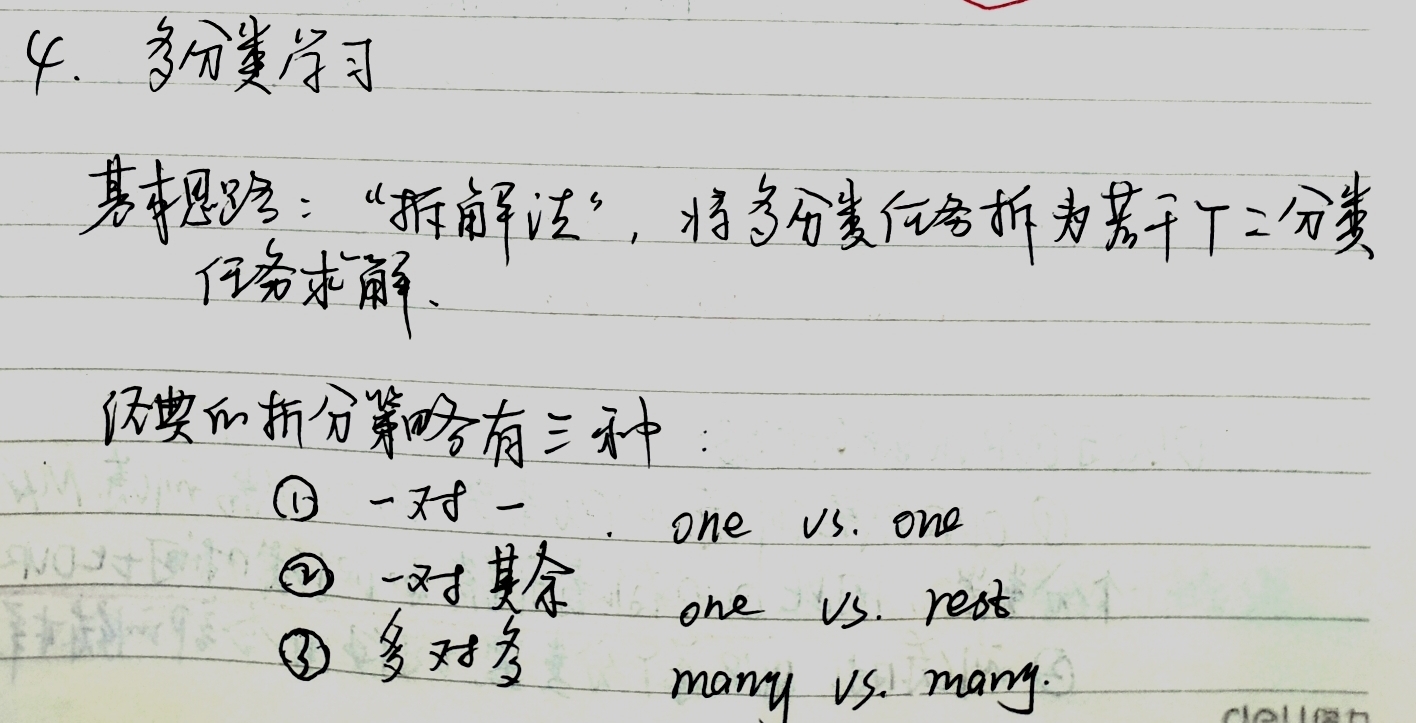 4. 多分类学习
基本思路：“拆解法”，将多分类任务拆为若干个二分类
任务求解.
经典的拆分策略有三种：
① 一对一. one vs. one
② 一对其余 one vs. rest
③ 多对多 many vs. many.
deli得力